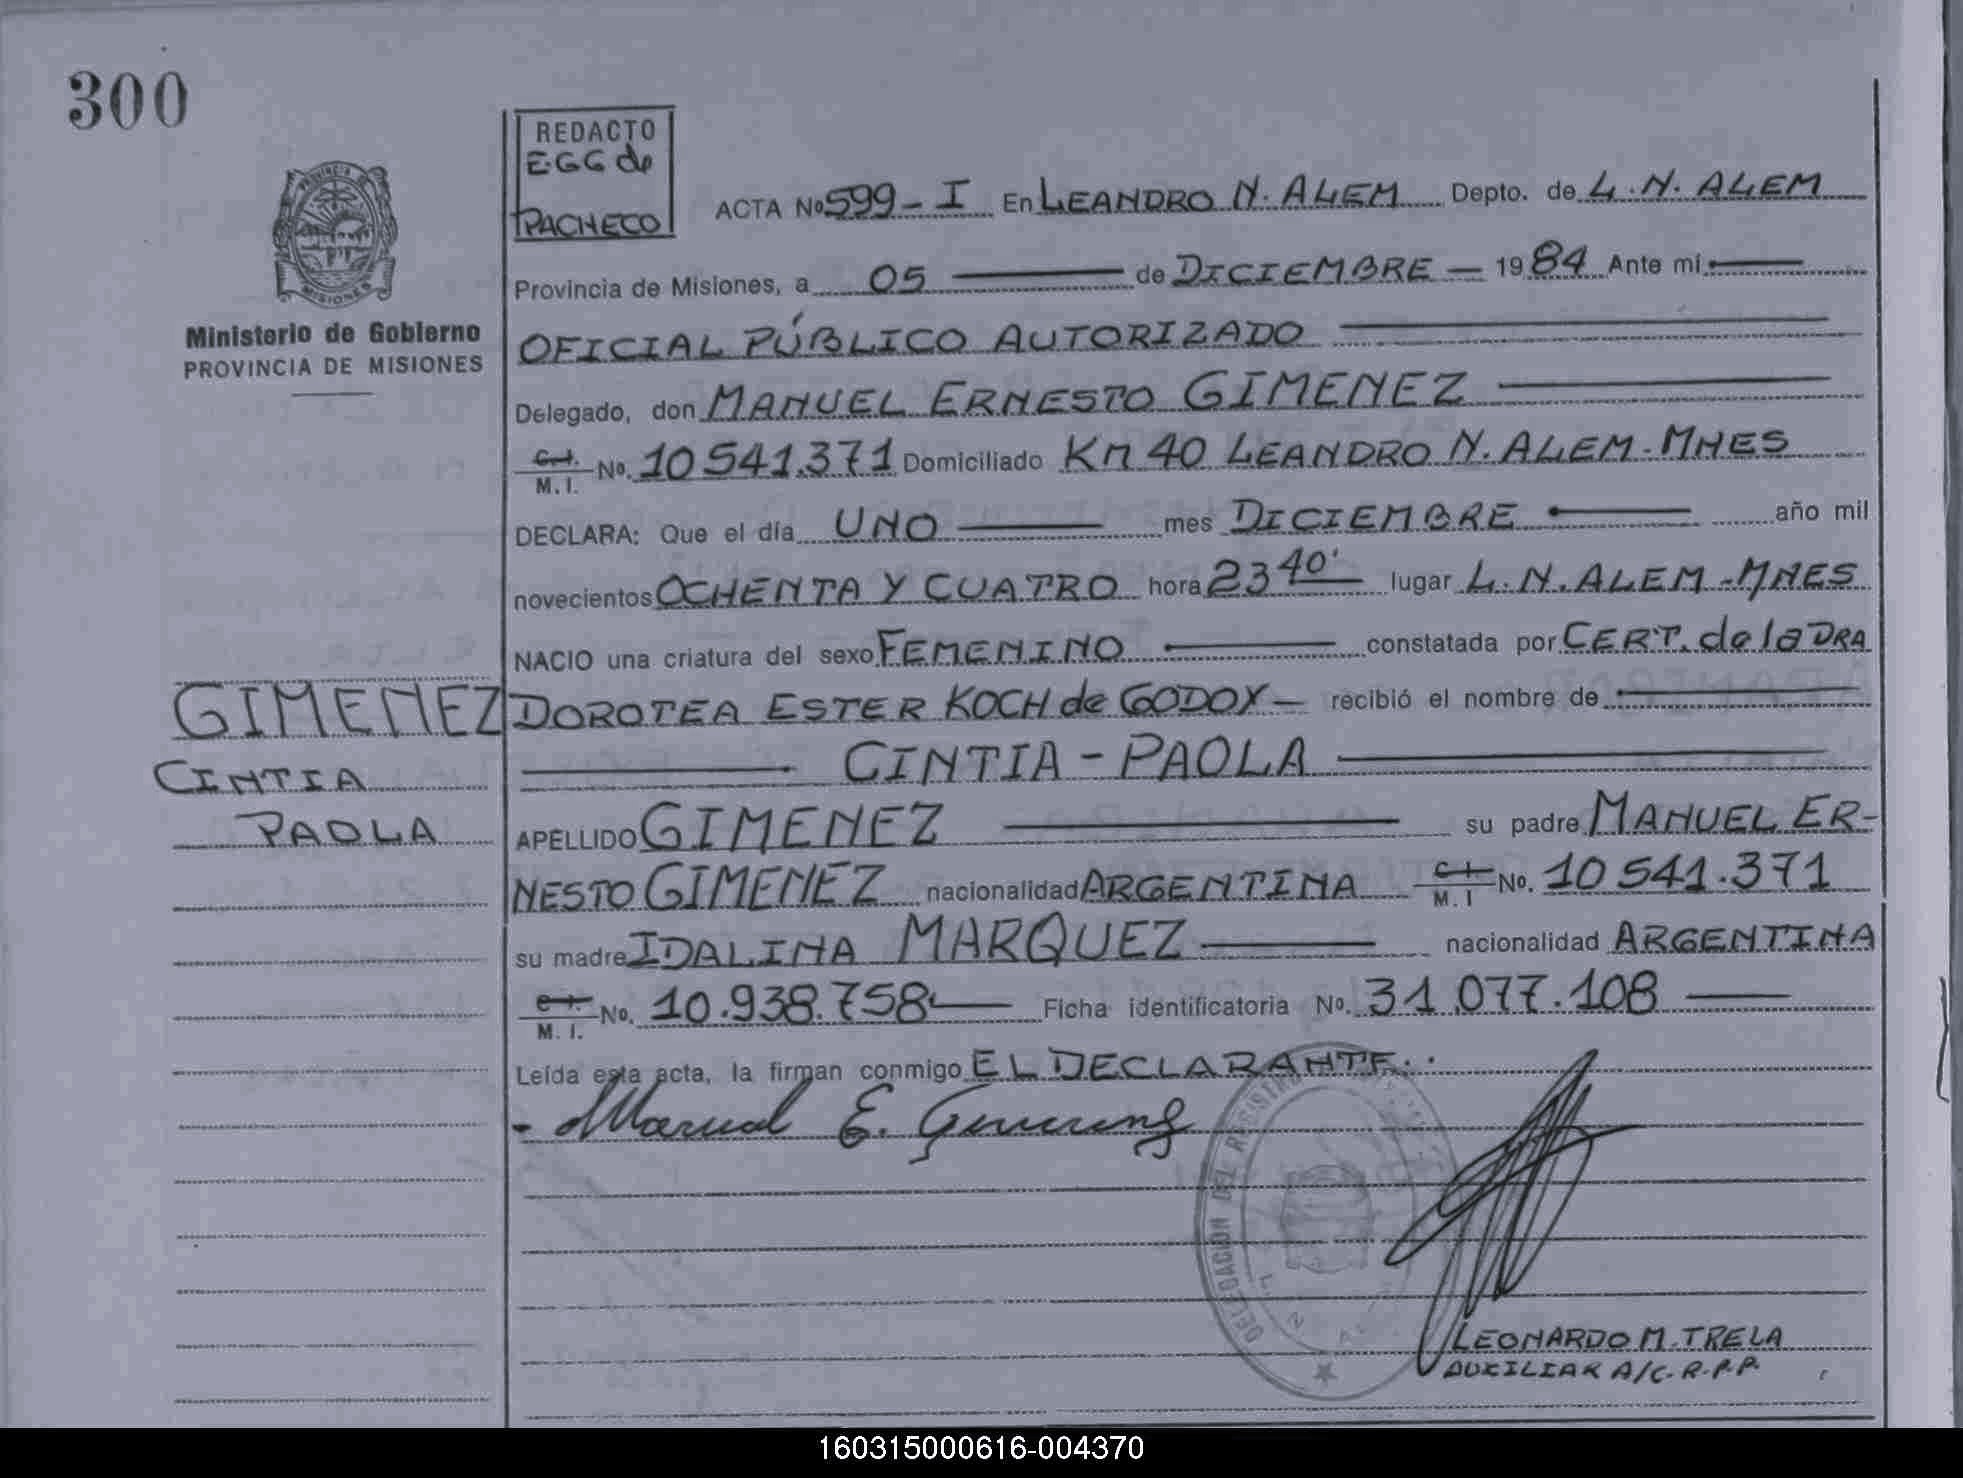 300
REDACTO
E.GG de
PACHECO
PROVINCIA DE
MISIONES
Ministerio de Gobierno
PROVINCIA DE MISIONES
ACTA Nº 599-I En LEANDRO N. ALEM Depto. de L.N. ALEM
Provincia de Misiones, a 05 de DICIEMBRE 1984 Ante mi
OFICIAL PÚBLICO AUTORIZADO
Delegado, don MANUEL ERNESTO GIMENEZ
C.I. M.I. Nº. 10 541.371 Domiciliado Km 40 LEANDRO N. ALEM - MNES
DECLARA: Que el día UNO mes DICIEMBRE año mil
novecientos OCHENTA Y CUATRO hora 23 40' lugar L.N. ALEM - MNES
NACIO una criatura del sexo FEMENINO constatada por CERT. de la DRA
DOROTEA ESTER KOCH de GODOY - recibió el nombre de
CINTIA - PAOLA
GIMENEZ
CINTIA
PAOLA
APELLIDO GIMENEZ su padre MANUEL ER-
NESTO GIMENEZ nacionalidad ARGENTINA C.I. M.I Nº. 10 541.371
su madre IDALINA MARQUEZ nacionalidad ARGENTINA
C.I. M.I. Nº. 10.938.758 Ficha identificatoria Nº. 31.077.108
Leída esta acta, la firman conmigo EL DECLARANTE..
Manuel E. Gimenez
DELEGACION DEL REGISTRO
LEONARDO M. TRELA
AUXILIAR A/C. R.P.P.
160315000616-004370